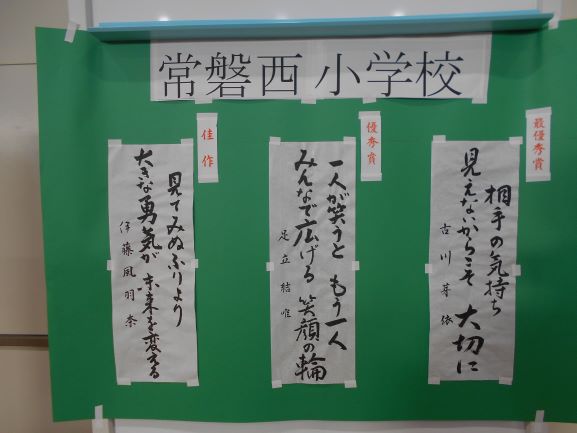 常磐西小学校
最優秀賞
相手の気持ち
見えないからこそ 大切に
古川芽依
優秀賞
一人が笑うと もう一人
みんなで広げる 笑顔の輪
足立結唯
佳作
見てみぬふりより
大きな勇気が 未来を変える
伊藤風羽奈